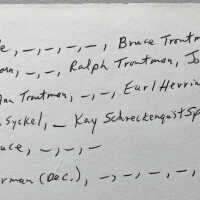 e, —, —, —, —, Bruce Troutm
ann, —, —, Ralph Troutman, Jo
Ann Troutman, —, —, Earl Herrin
Syckel, — Kay Schreckengust Sp
uce, —, —, —
erman (Dec.), —, —, —, —,